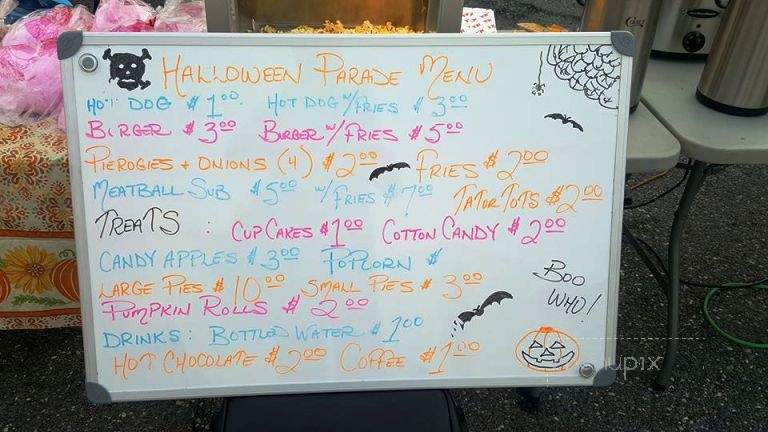 HALLOWEEN PARADE MENU
HOT DOG $1.00 HOT DOG W/FRIES $3.00
BIRGER $3.00 BURGER W/FRIES $5.00
PIEROGIES + ONIONS (4) $2.00 FRIES $2.00
MEATBALL SUB $5.00 W/FRIES $7.00 TATOR TOTS $2.00
TREATS : CUPCAKES $1.00 COTTON CANDY $2.00
CANDY APPLES $3.00 POPCORN $
LARGE PIES $10.00 SMALL PIES $3.00
PUMPKIN ROLLS $2.00
BOO
WHO!
DRINKS: BOTTLED WATER $1.00
HOT CHOCOLATE $2.00 COFFEE $1.00